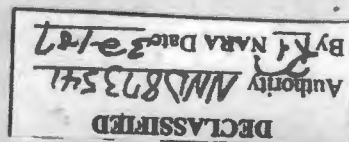 DECLASSIFIED
Authority NND873541
By NARA Date